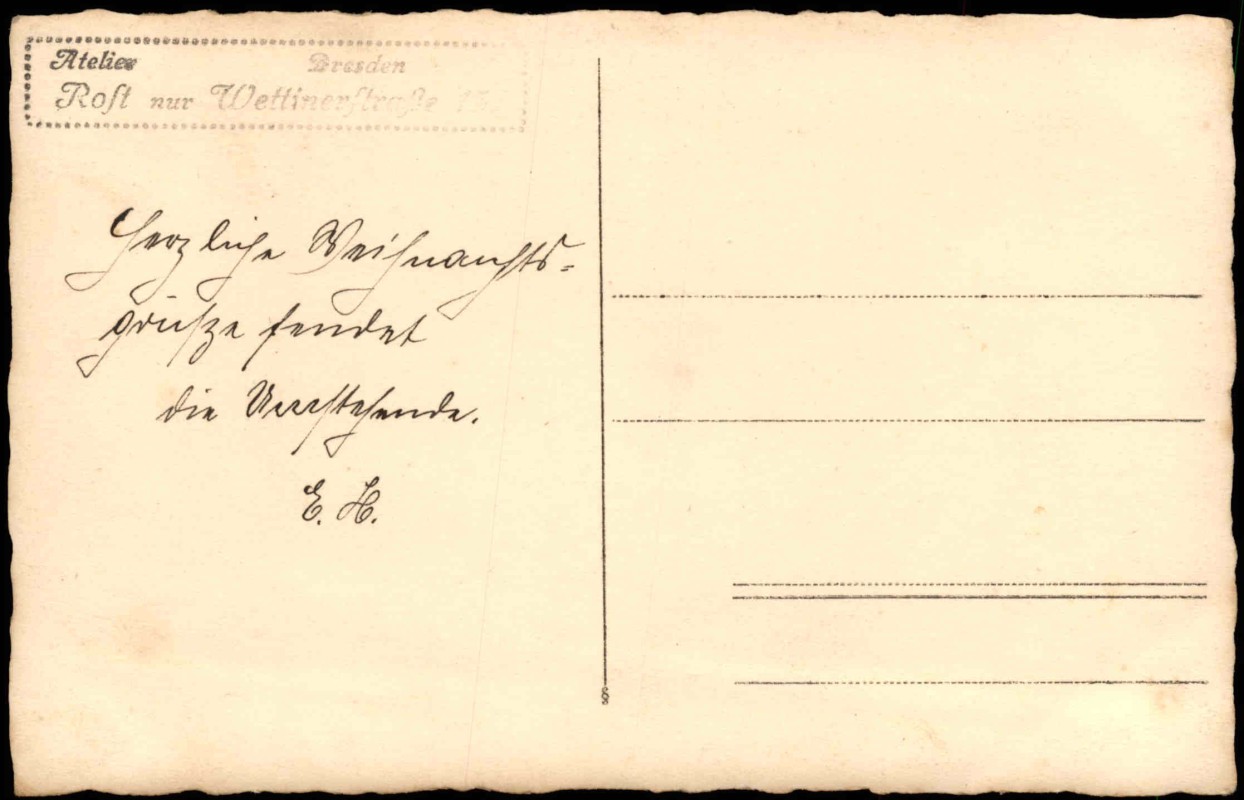 Atelier Dresden
Rost nur Wettinerstraße
Herzliche Weihnachts-
grüße sendet
die Umstehende.
E. H.